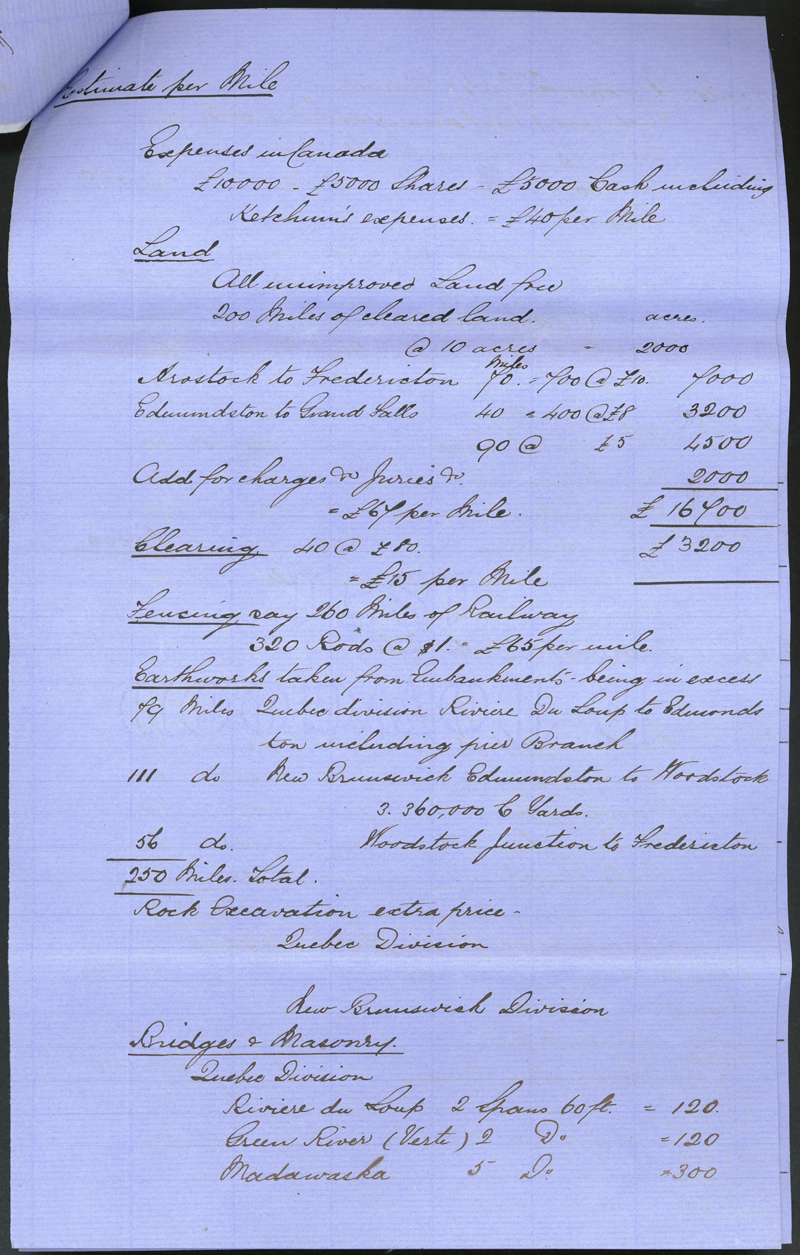 Estimate per Mile
Expenses in Canada
£10000 - £5000 Shares - £5000 Cash including
Ketchum's expenses. = £40 per Mile
Land
All unimproved Land free
200 Miles of cleared land. acres.
@ 10 acres - 2000
Miles
Arostock to Fredericton 70. = 700 @ £10. 7000
Edmundston to Grand Falls 40 = 400 @ £8 3200
90 @ £5 4500
Add for charges &c Juries &c. 2000
= £67 per Mile. £ 16700
Clearing 40 @ £80. £ 3200
= £15 per Mile
Fencing say 260 Miles of Railway
320 Rods @ $1. = £65 per mile.
Earthworks taken from Embankments being in excess
79 Miles Quebec division Riviere Du Loup to Edmonds
ton including pier Branch
111 do New Brunswick Edmundston to Woodstock
3.360,000 C Yards.
56 do. Woodstock Junction to Fredericton
250 Miles. Total.
Rock Excavation extra price -
Quebec Division
New Brunswick Division
Bridges & Masonry.
Quebec Division
Riviere du Loup 2 Spans 60 ft. = 120.
Green River (Verte) 2 Do = 120
Madawaska 5 Do. = 300